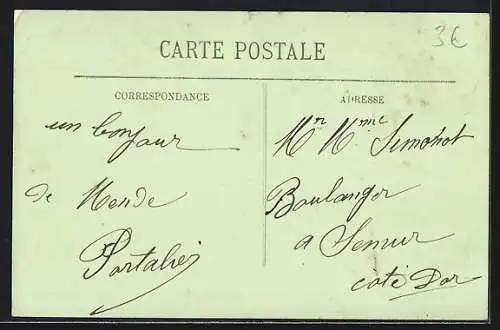 3€
CARTE POSTALE
CORRESPONDANCE
un bonjour
de Mende
Portalier
ADRESSE
Mr Mme Simonot
Boulanger
a Semur
cote Dor